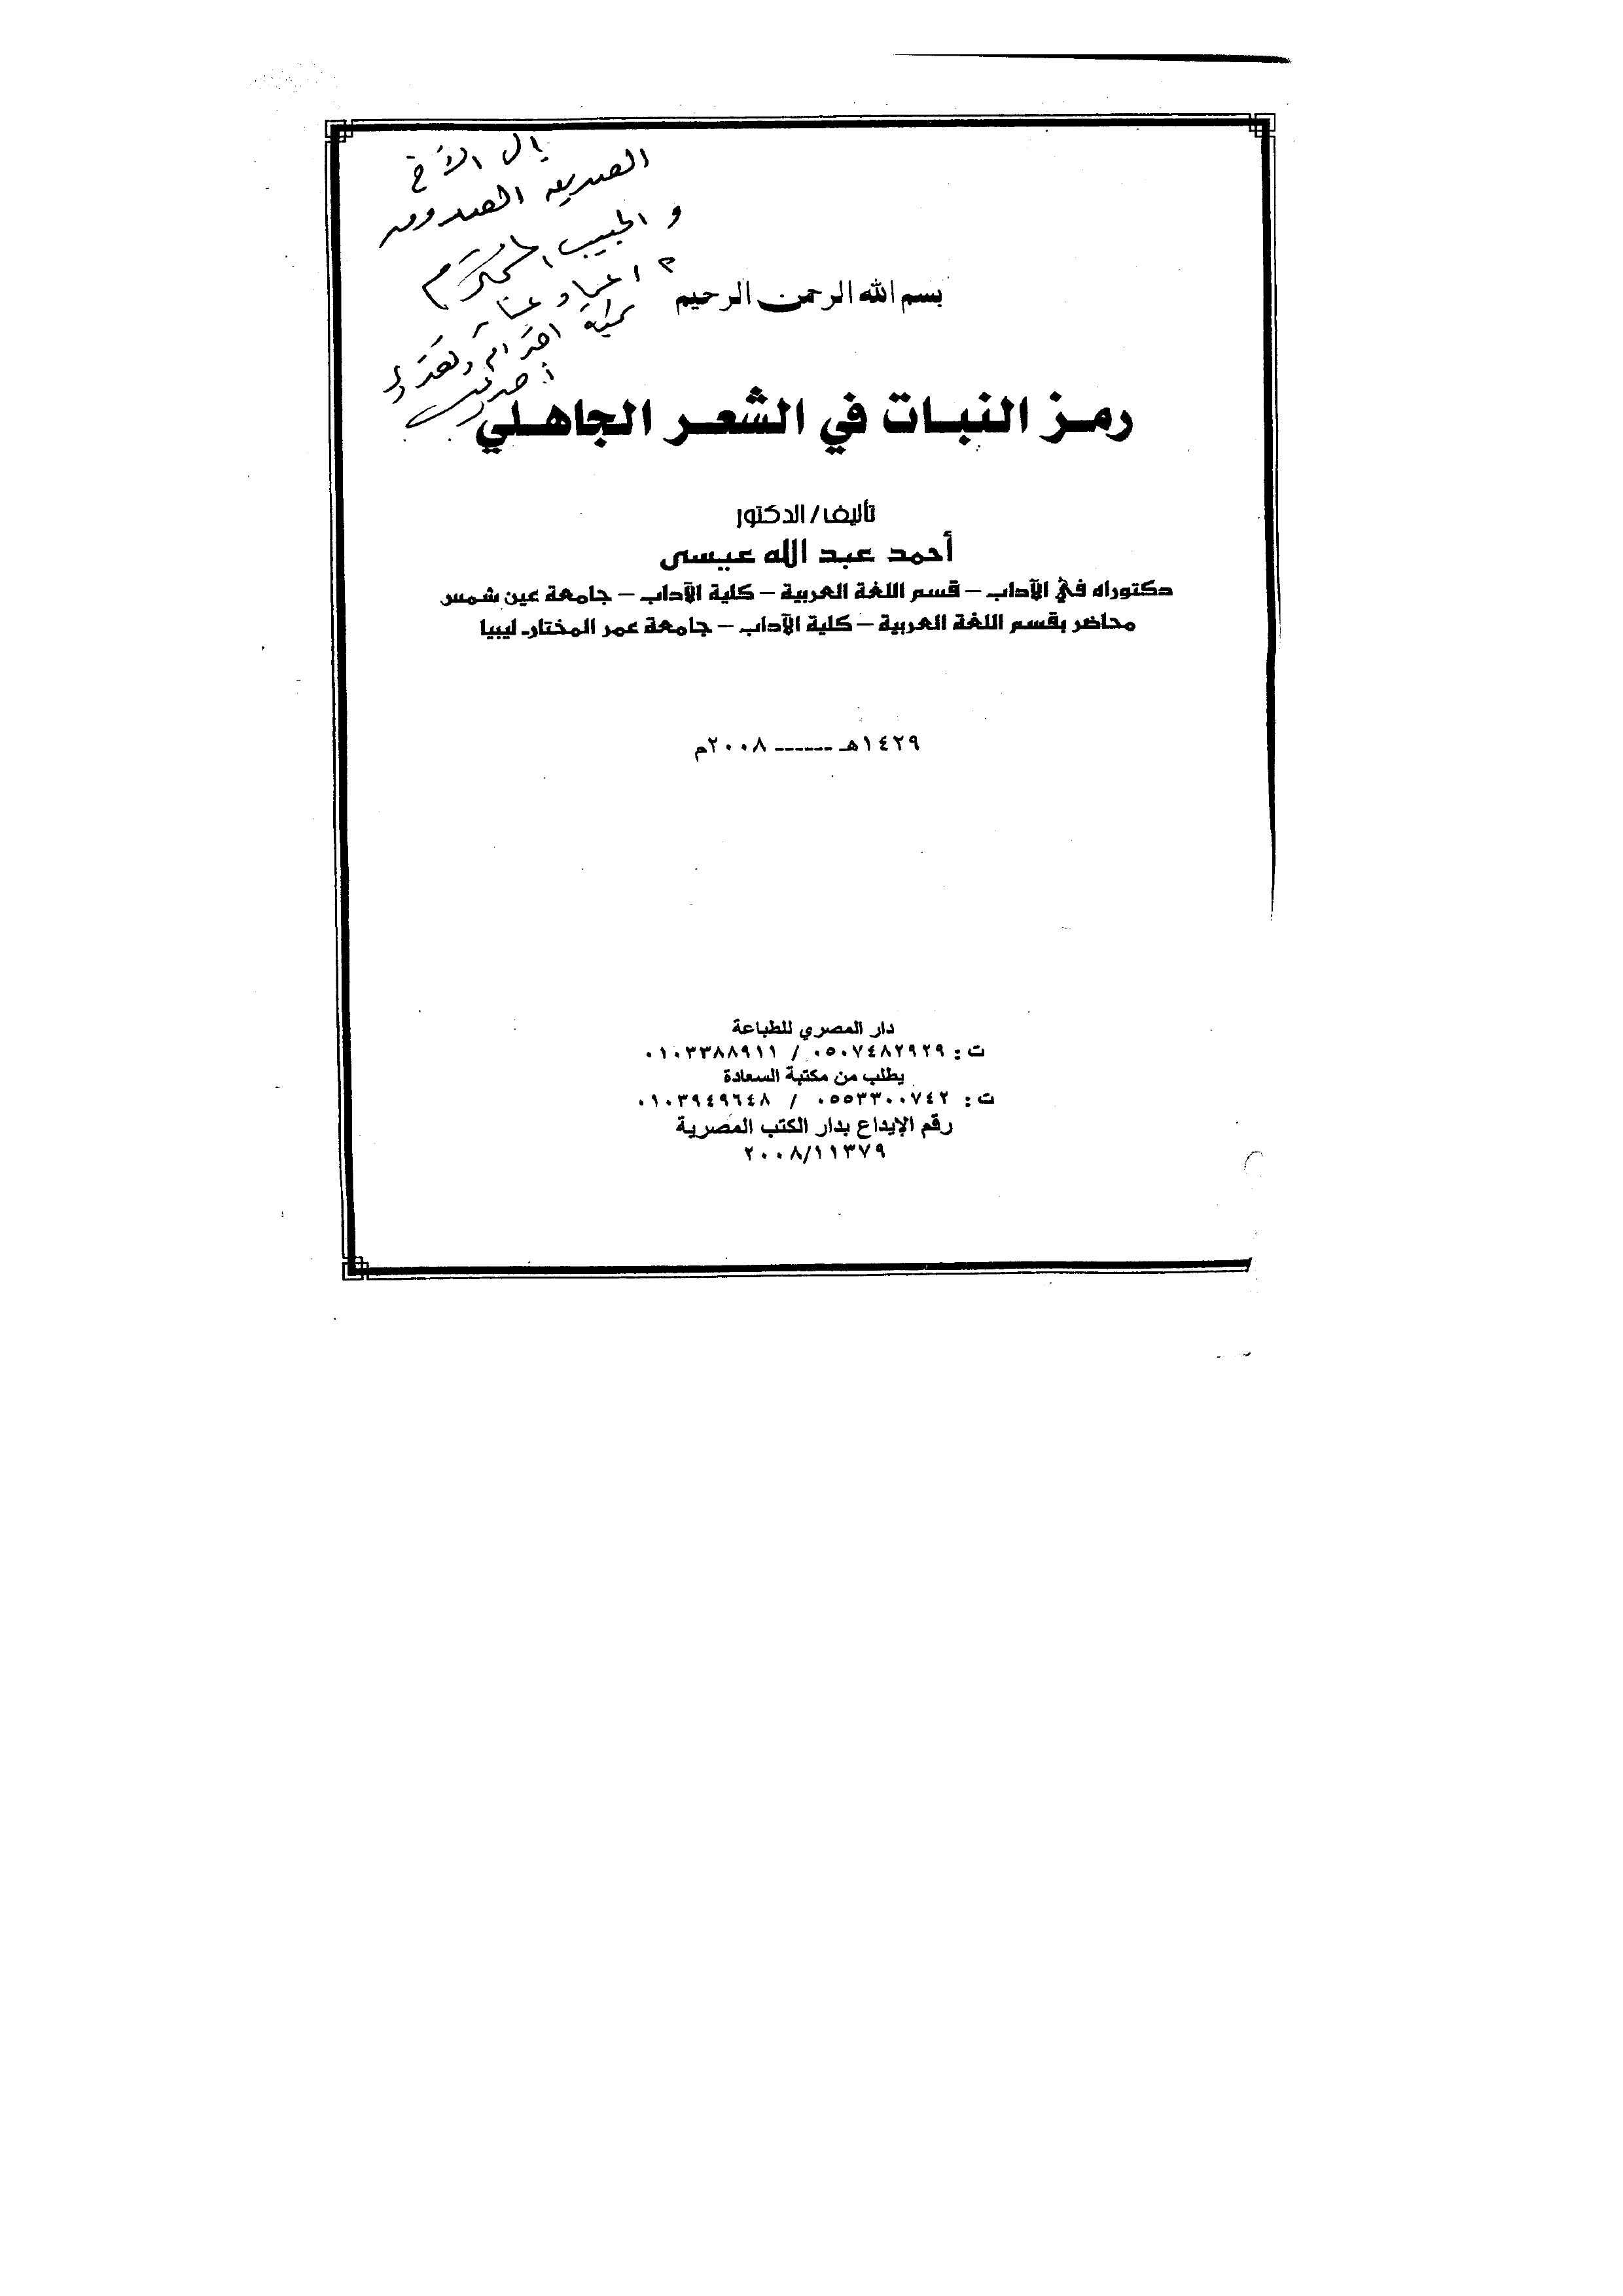 إلى الأخ
الصديق الصدوق
و الحبيب المكرم
تحية احترام وتقدير
بسم الله الرحمن الرحيم
رمز النبات في الشعر الجاهلي
تأليف/الدكتور
أحمد عبد الله عيسى
دكتوراه في الآداب – قسم اللغة العربية – كلية الآداب – جامعة عين شمس
محاضر بقسم اللغة العربية – كلية الآداب – جامعة عمر المختار- ليبيا
١٤٢٩هـ ------ ٢٠٠٨م
دار المصري للطباعة
ت : ٠٥٠٧٤٨٢٩٢٩ / ٠١٠٣٣٨٨٩١١
يطلب من مكتبة السعادة
ت : ٠٥٥٣٣٠٠٧٤٢ / ٠١٠٣٩٤٩٦٤٨
رقم الإيداع بدار الكتب المصرية
٢٠٠٨/١١٣٧٩